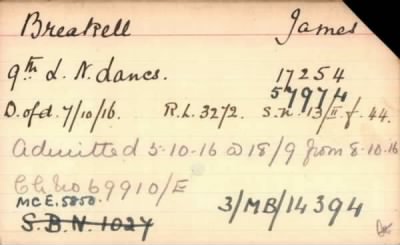 Breakell James
9th L. N. Lancs. 17254
57974
D. of d. 7/10/16. R.L. 32/2. S.N. 13/II f. 44.
Admitted 5-10-16 @ 18/9 from 8-10-16
Ch. No 69910/E
MC E. 5850. 3/MB/14394
S.B.N. 1027